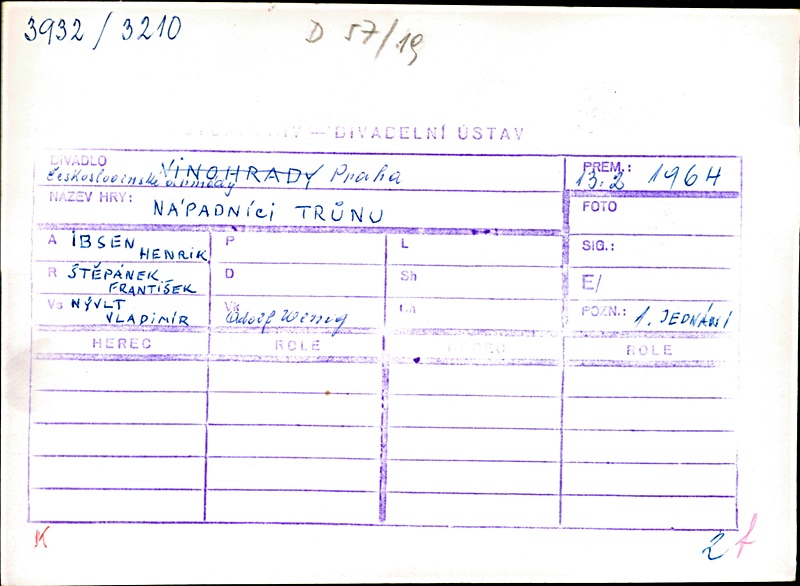 3932 / 3210
D 57/19
DIVADELNÍ ÚSTAV
DIVADLO VINOHRADY Praha
československé armády
PREM.: 13.2 1964
NÁZEV HRY: NÁPADNÍCI TRŮNU
FOTO
A IBSEN HENRIK
P
L
SIG.:
R ŠTĚPÁNEK FRANTIŠEK
D
Sh
E/
Vs NÝVLT VLADIMÍR
Vk Adolf Wenig
POZN.: 1. JEDNÁNÍ
HEREC ROLE HEREC ROLE
K
2 f